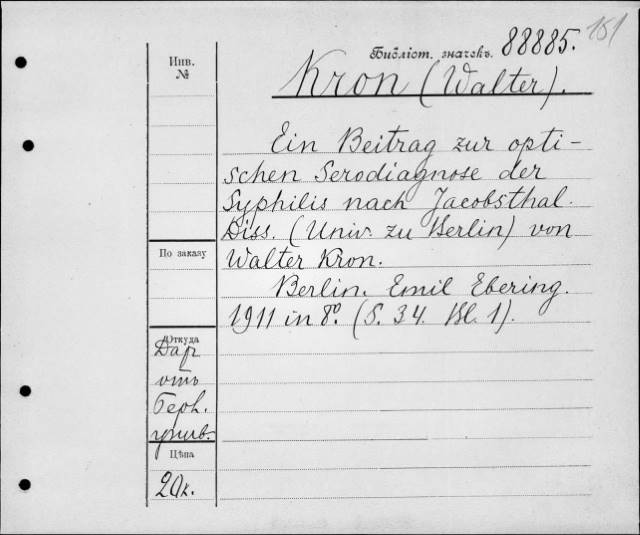 151
Библіот. значекъ. 88885.
Инв.
№
Kron (Walter).
Ein Beitrag zur opti-
schen Serodiagnose der
Syphilis nach Jacobsthal.
Diss. (Univ. zu Berlin) von
По заказу
Walter Kron.
Berlin. Emil Ebering.
1911 in 8º. (S. 34. Bl. 1).
Откуда
Дар
отъ
Берл.
унив.
Цѣна
20к.